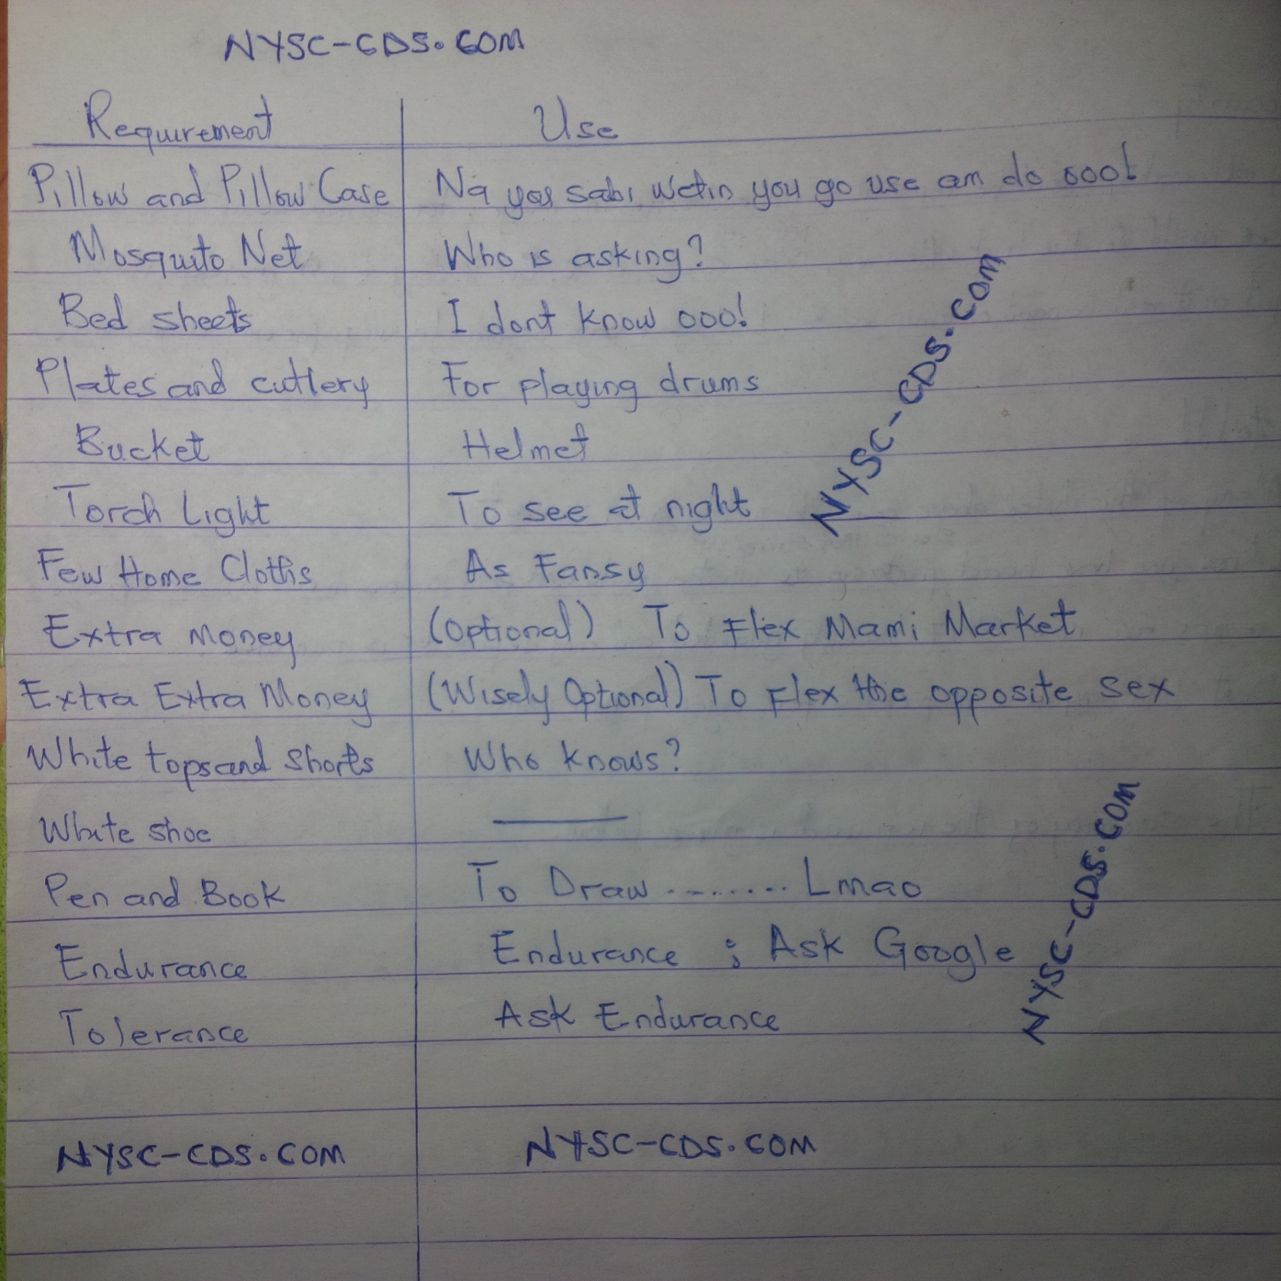 NYSC-CDS.COM
Requirement Use
Pillow and Pillow Case Na you sabi wetin you go use am do ooo!
Mosquito Net Who is asking?
Bed sheets I dont know ooo!
Plates and cutlery For playing drums
Bucket Helmet
Torch Light To see at night
NYSC-CDS.COM
Few Home Cloths As Fansy
Extra Money (Optional) To Flex Mami Market
Extra Extra Money (Wisely Optional) To Flex the opposite sex
White tops and shorts Who knows?
White shoe
Pen and Book To Draw ........ Lmao
Endurance Endurance ; Ask Google
Tolerance Ask Endurance
NYSC-CDS.COM
NYSC-CDS.COM NYSC-CDS.COM